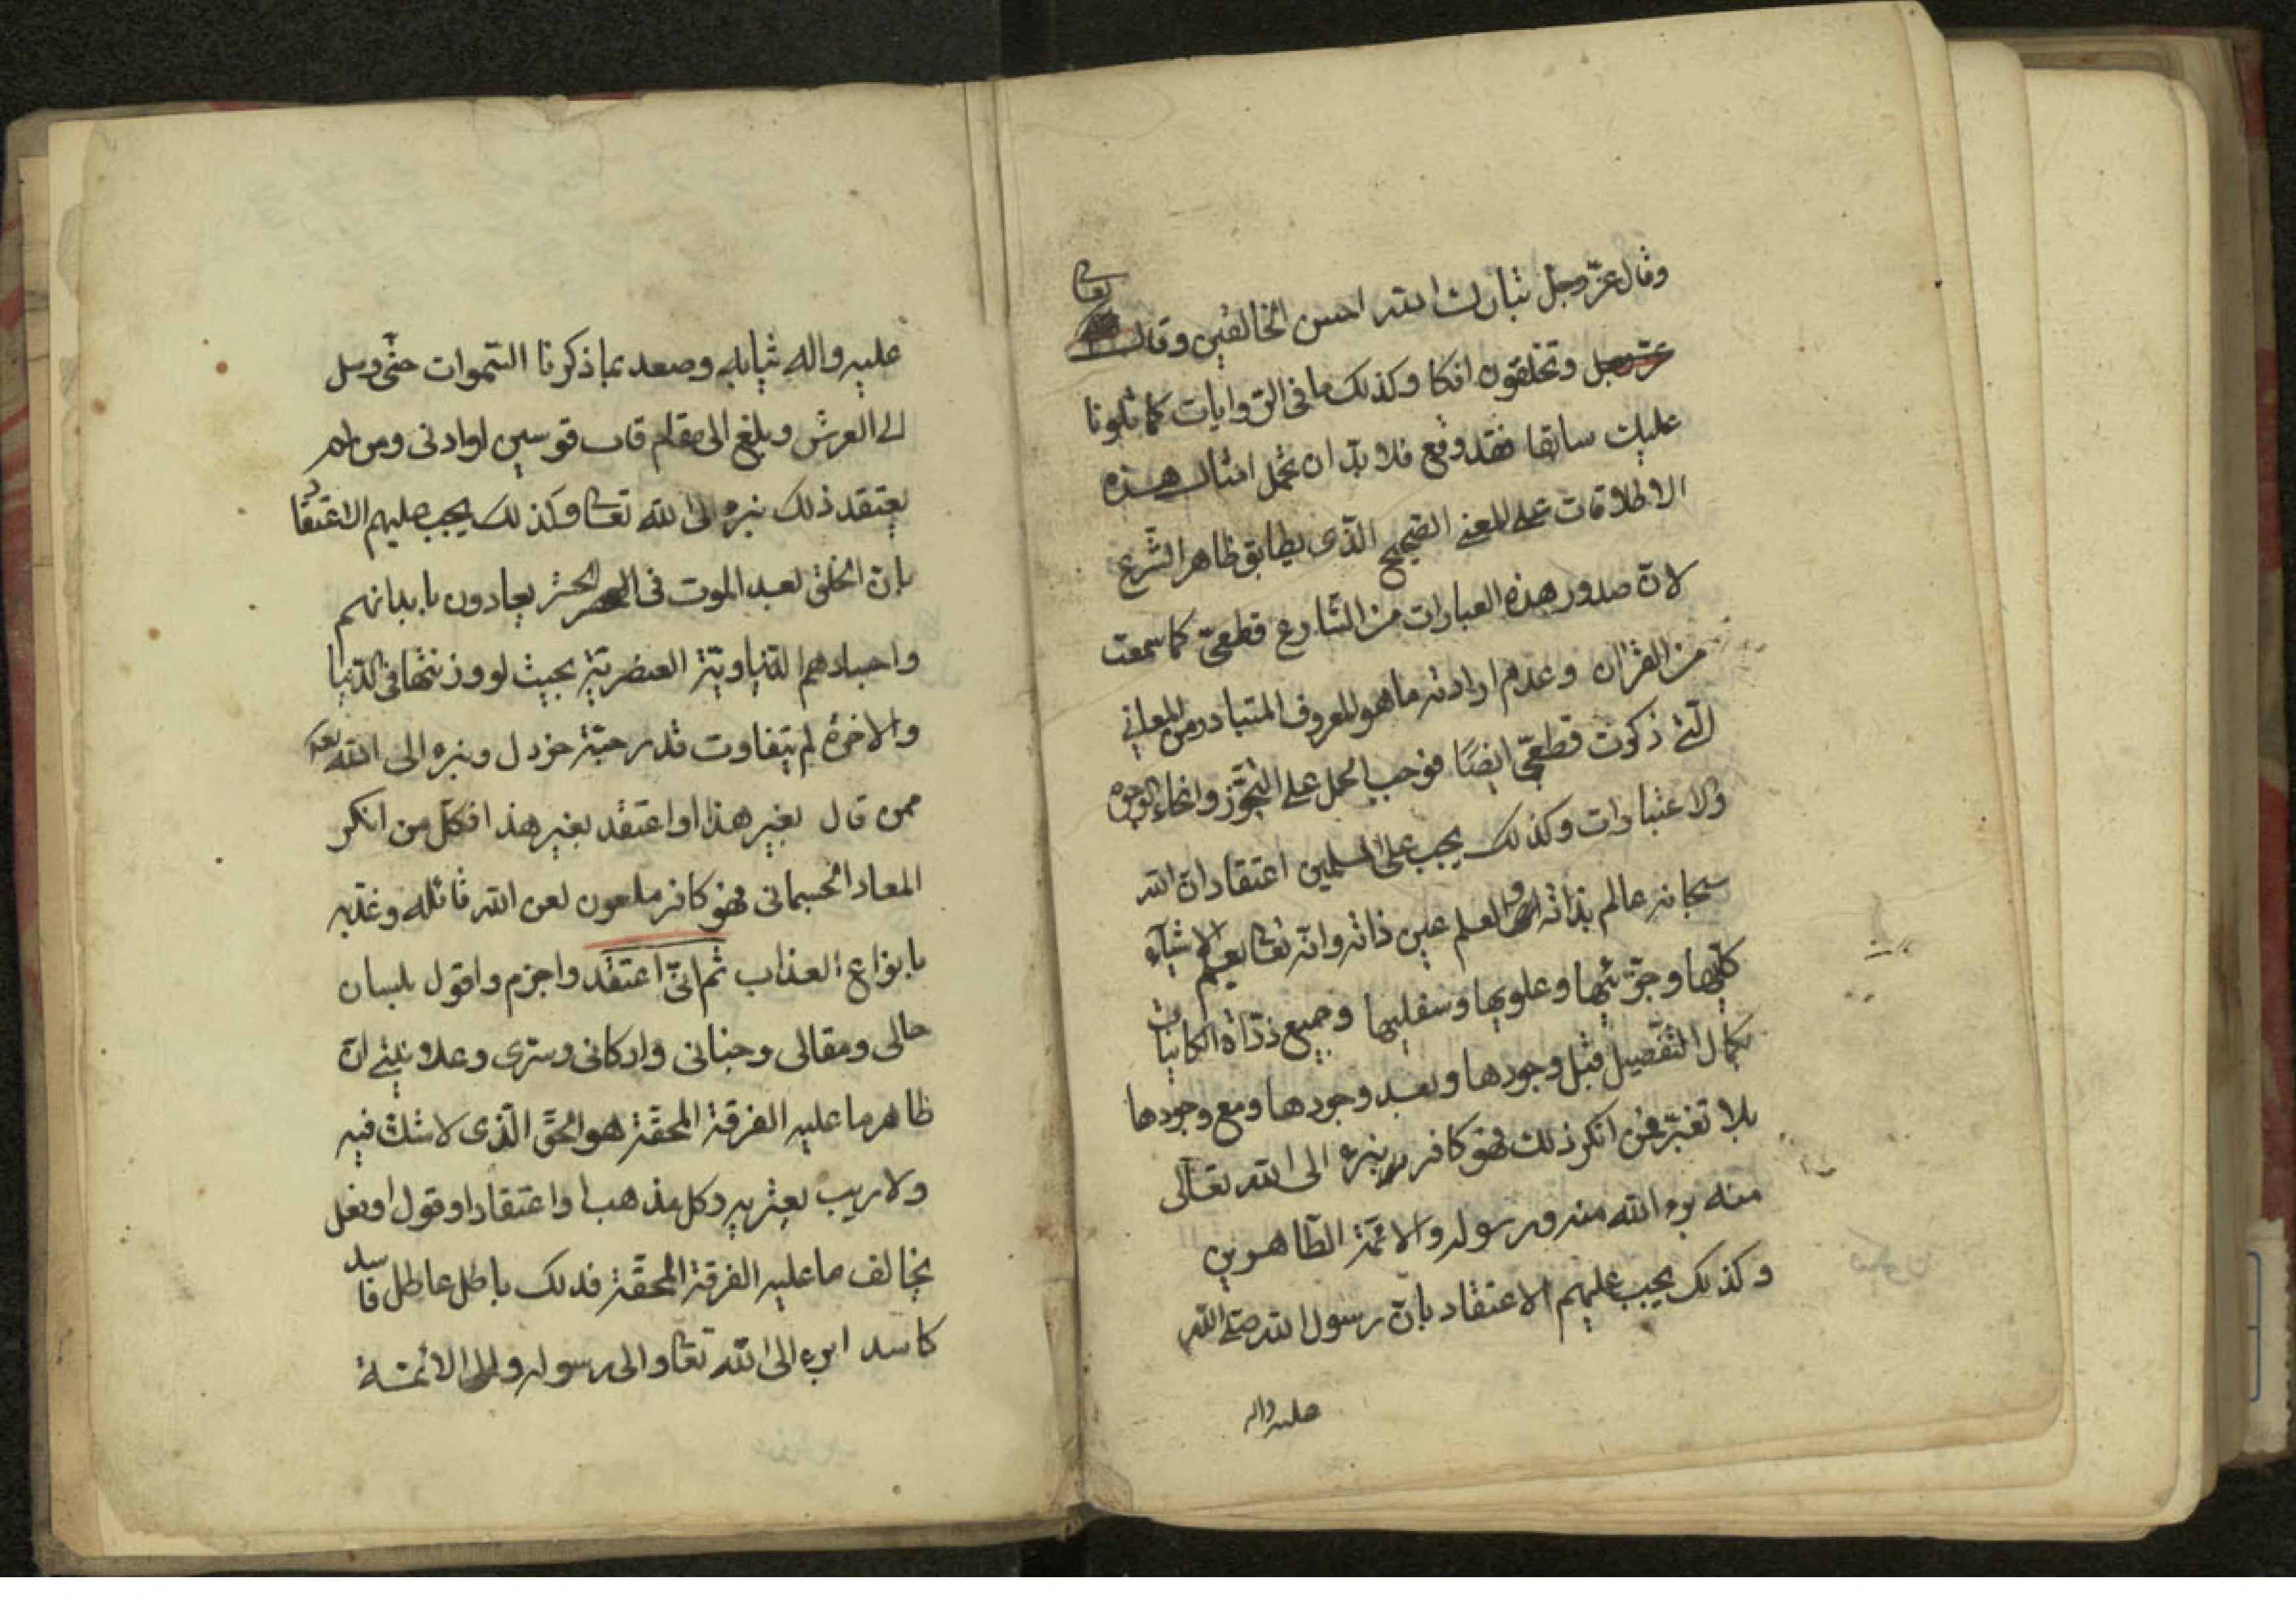 وقال عزّ وجل تبارك الله احسن الخالقين وقال تعالى
عز وجل وتخلقون افكا وكذلك ما فى الروايات كما تلونا
عليك سابقا فقد وقع فلا بدّ ان نحمل امثال هذه
الاطلاقات على المعنى الصحيح الّذى يطابق ظاهر الشّرع
لانّ صدور هذه العبارات من الشّارع قطعىّ كما سمعت
من القران وعدم ارادته ما هو المعروف المتبادر من المعانى
الّتى ذكرت قطعىّ ايضًا فوجب الحمل على التجوّز وانحاء الوجوه
والاعتبارات وكذلك يجب على المسلمين اعتقاد ان الله
سبحانه عالم بذاته والعلم عين ذاته وانّه تعالى يعلم الاشيآء
كلّيها وجزئيّها وعلويها وسفليها وجميع ذرّاة الكاينات
بكمال التّفصيل قبل وجودها وبعد وجودها ومع وجودها
بلا تغيّر فمن انكر ذلك فهو كافر نبرء الى الله تعالى
منه برء الله منه ورسوله والائمّة الطّاهرين
وكذلك يجب عليهم الاعتقاد بانّ رسول الله صلى الله
عليه واله
عليه واله ثيابه وصعد بما ذكرنا السّموات حتّى وصل
الى العرش وبلغ الى مقام قاب قوسين او ادنى ومن لم
يعتقد ذلك نبرء الى الله تعالى وكذلك يجب عليهم الاعتقاد
بانّ الخلق بعد الموت فى الحشر يعادون بابدانهم
واجسادهم الدّنياويّة العنصريّة بحيث لو وزنتها فى الدّنيا
والاخرة لم يتفاوت قدر حبّة خردل ونبرء الى الله تعالى
ممن قال بغير هذا او اعتقد بغير هذا فكل من انكر
المعاد الجسمانى فهو كافر ملعون لعن الله قائله وعذّبه
بانواع العذاب ثم انّى اعتقد واجزم واقول بلسان
حالى ومقالى وجنانى واركانى وسترى وعلانيتى انّ
ظاهر ما عليه الفرقة المحقّة هو الحقّ الّذى لا شك فيه
ولا ريب يعتريه وكل مذهب او اعتقاد او قول او فعل
يخالف ما عليه الفرقة المحقّة فذلك باطل عاطل فاسد
كاسد ابرء الى الله تعالى والى رسوله والى الائمة